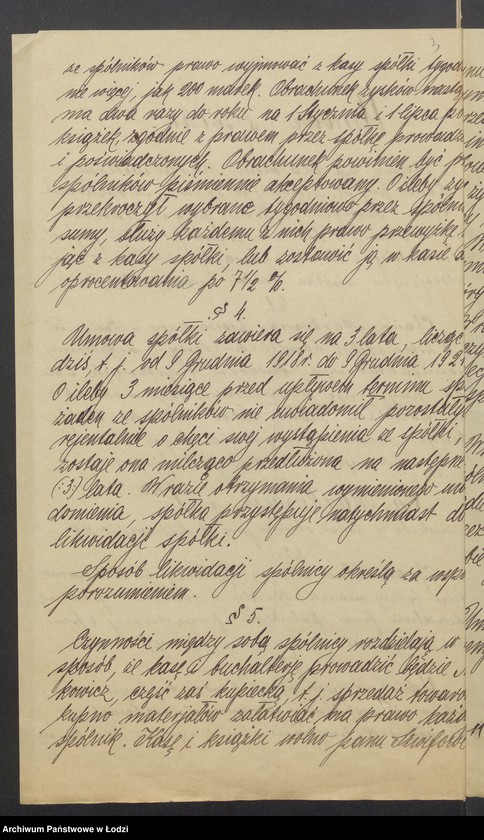 3
ze spólników prawo wyjmować z kasy spółki tygod
nie więcej, jak 200 marek. Obrachunek zysków nastę
ma dwa razy do roku na 1 Stycznia i 1 lipca po
książek, zgodnie z prawem przez spółkę prowadz
i poświadczonych. Obrachunek powinien być p
spólników piśmiennie akceptowany. O ileby zy
przekroczył wybrane tygodniowo przez spóln
sumy, służy każdemu z nich prawo przewyżkę
jąć z kasy spółki lub zostawić ją w kasie
oprocentowania po 7 1/2 %.
§ 4.
Umowa spółki zawiera się na 3 lata, licząc
dziś t. j. od 9 Grudnia 1918 r. do 9 Grudnia 192
O ileby 3 miesiące przed upływem terminu sp
żaden ze spólników nie zawiadomił pozostały
rejentalnie o chęci swej wystąpienia ze spółki,
zostaje ona milcząco przedłużona na następne
(:3:) lata. W razie otrzymania wymienionego
domienia, spółka przystępuje natychmiast d
likwidacji spółki.
Sposób likwidacji spólnicy określą za wsp
porozumieniem.
§ 5.
Czynności między sobą spólnicy rozdzielają w
sposób, że kasę a buchalterję prowadzić będzie
kowicz, część zaś kupiecką, t. j. sprzedaż towaro
kupno materjałów załatwiać ma prawo każd
spólnik. Kasę i książki wolno panu
Archiwum Państwowe w Łodzi